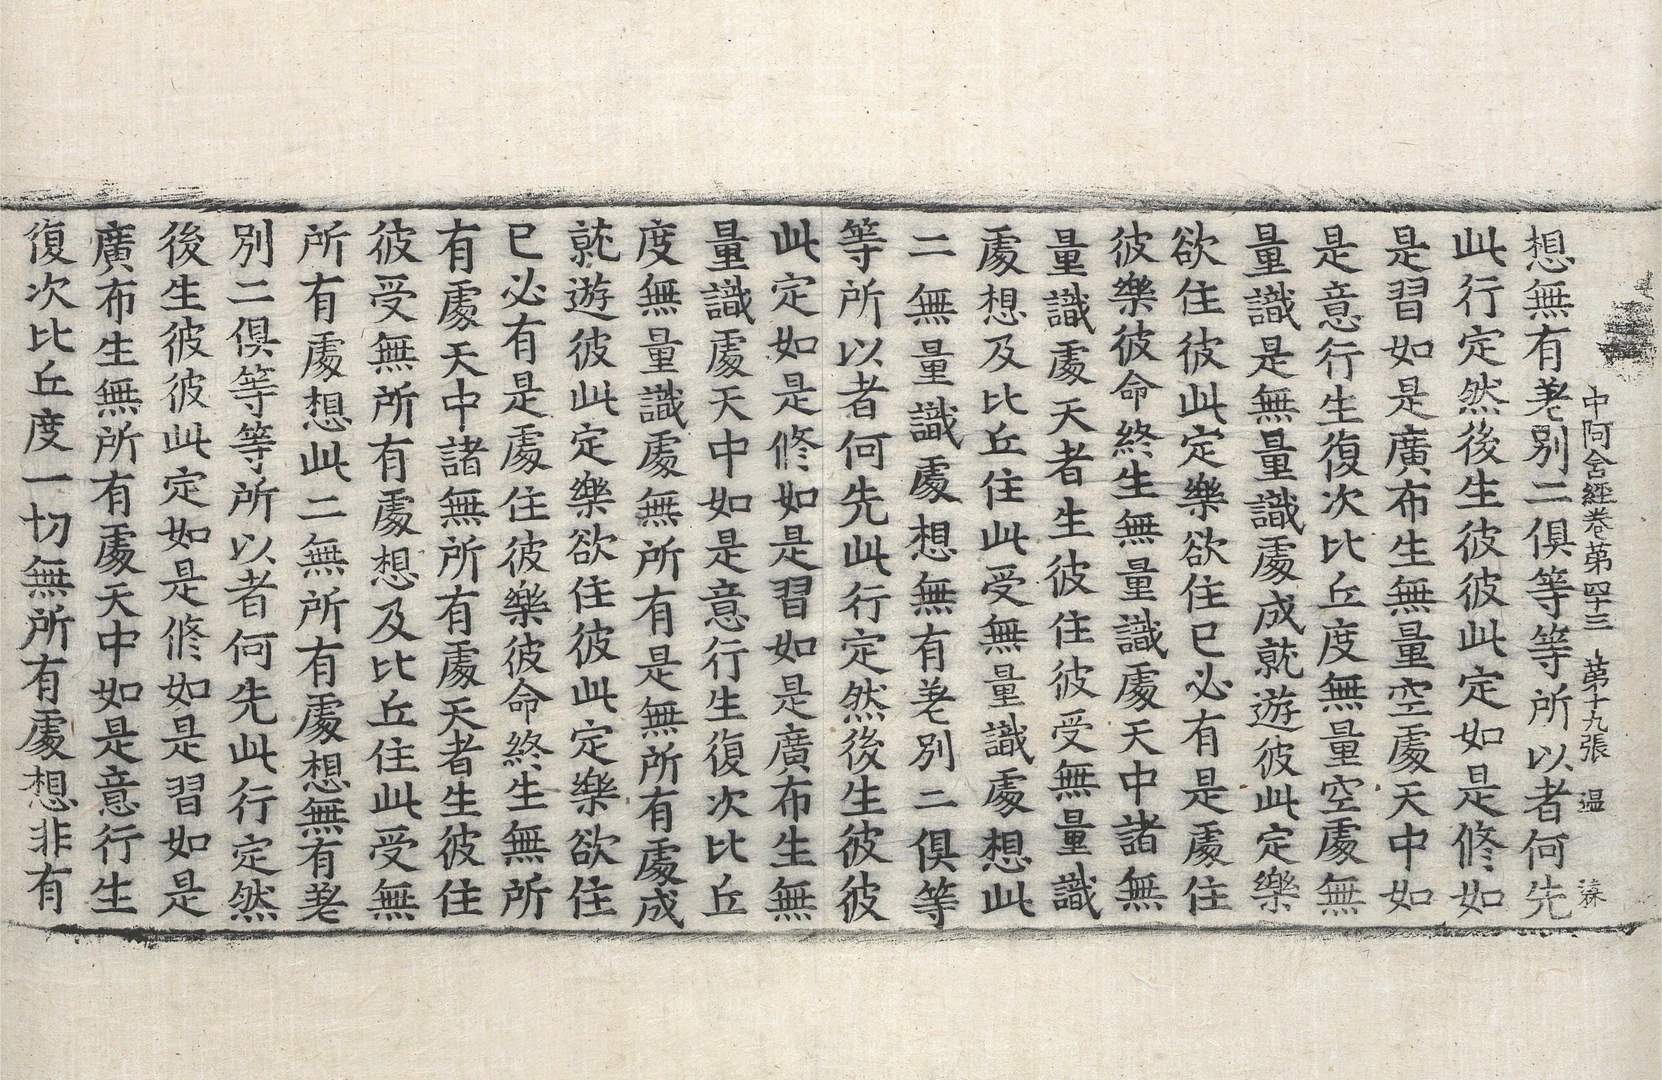 中阿含經卷第四十三　第十九張　温
想無有差別二俱等等所以者何先
此行定然後生彼彼此定如是修如
是習如是廣布生無量空處天中如
是意行生復次比丘度無量空處無
量識是無量識處成就遊彼此定樂
欲住彼此定樂欲住已必有是處住
彼樂彼命終生無量識處天中諸無
量識處天者生彼住彼受無量識
處想及比丘住此受無量識處想此
二無量識處想無有差別二俱等
等所以者何先此行定然後生彼彼
此定如是修如是習如是廣布生無
量識處天中如是意行生復次比丘
度無量識處無所有是無所有處成
就遊彼此定樂欲住彼此定樂欲住
已必有是處住彼樂彼命終生無所
有處天中諸無所有處天者生彼住
彼受無所有處想及比丘住此受無
所有處想此二無所有處想無有差
別二俱等等所以者何先此行定然
後生彼彼此定如是修如是習如是
廣布生無所有處天中如是意行生
復次比丘度一切無所有處想非有